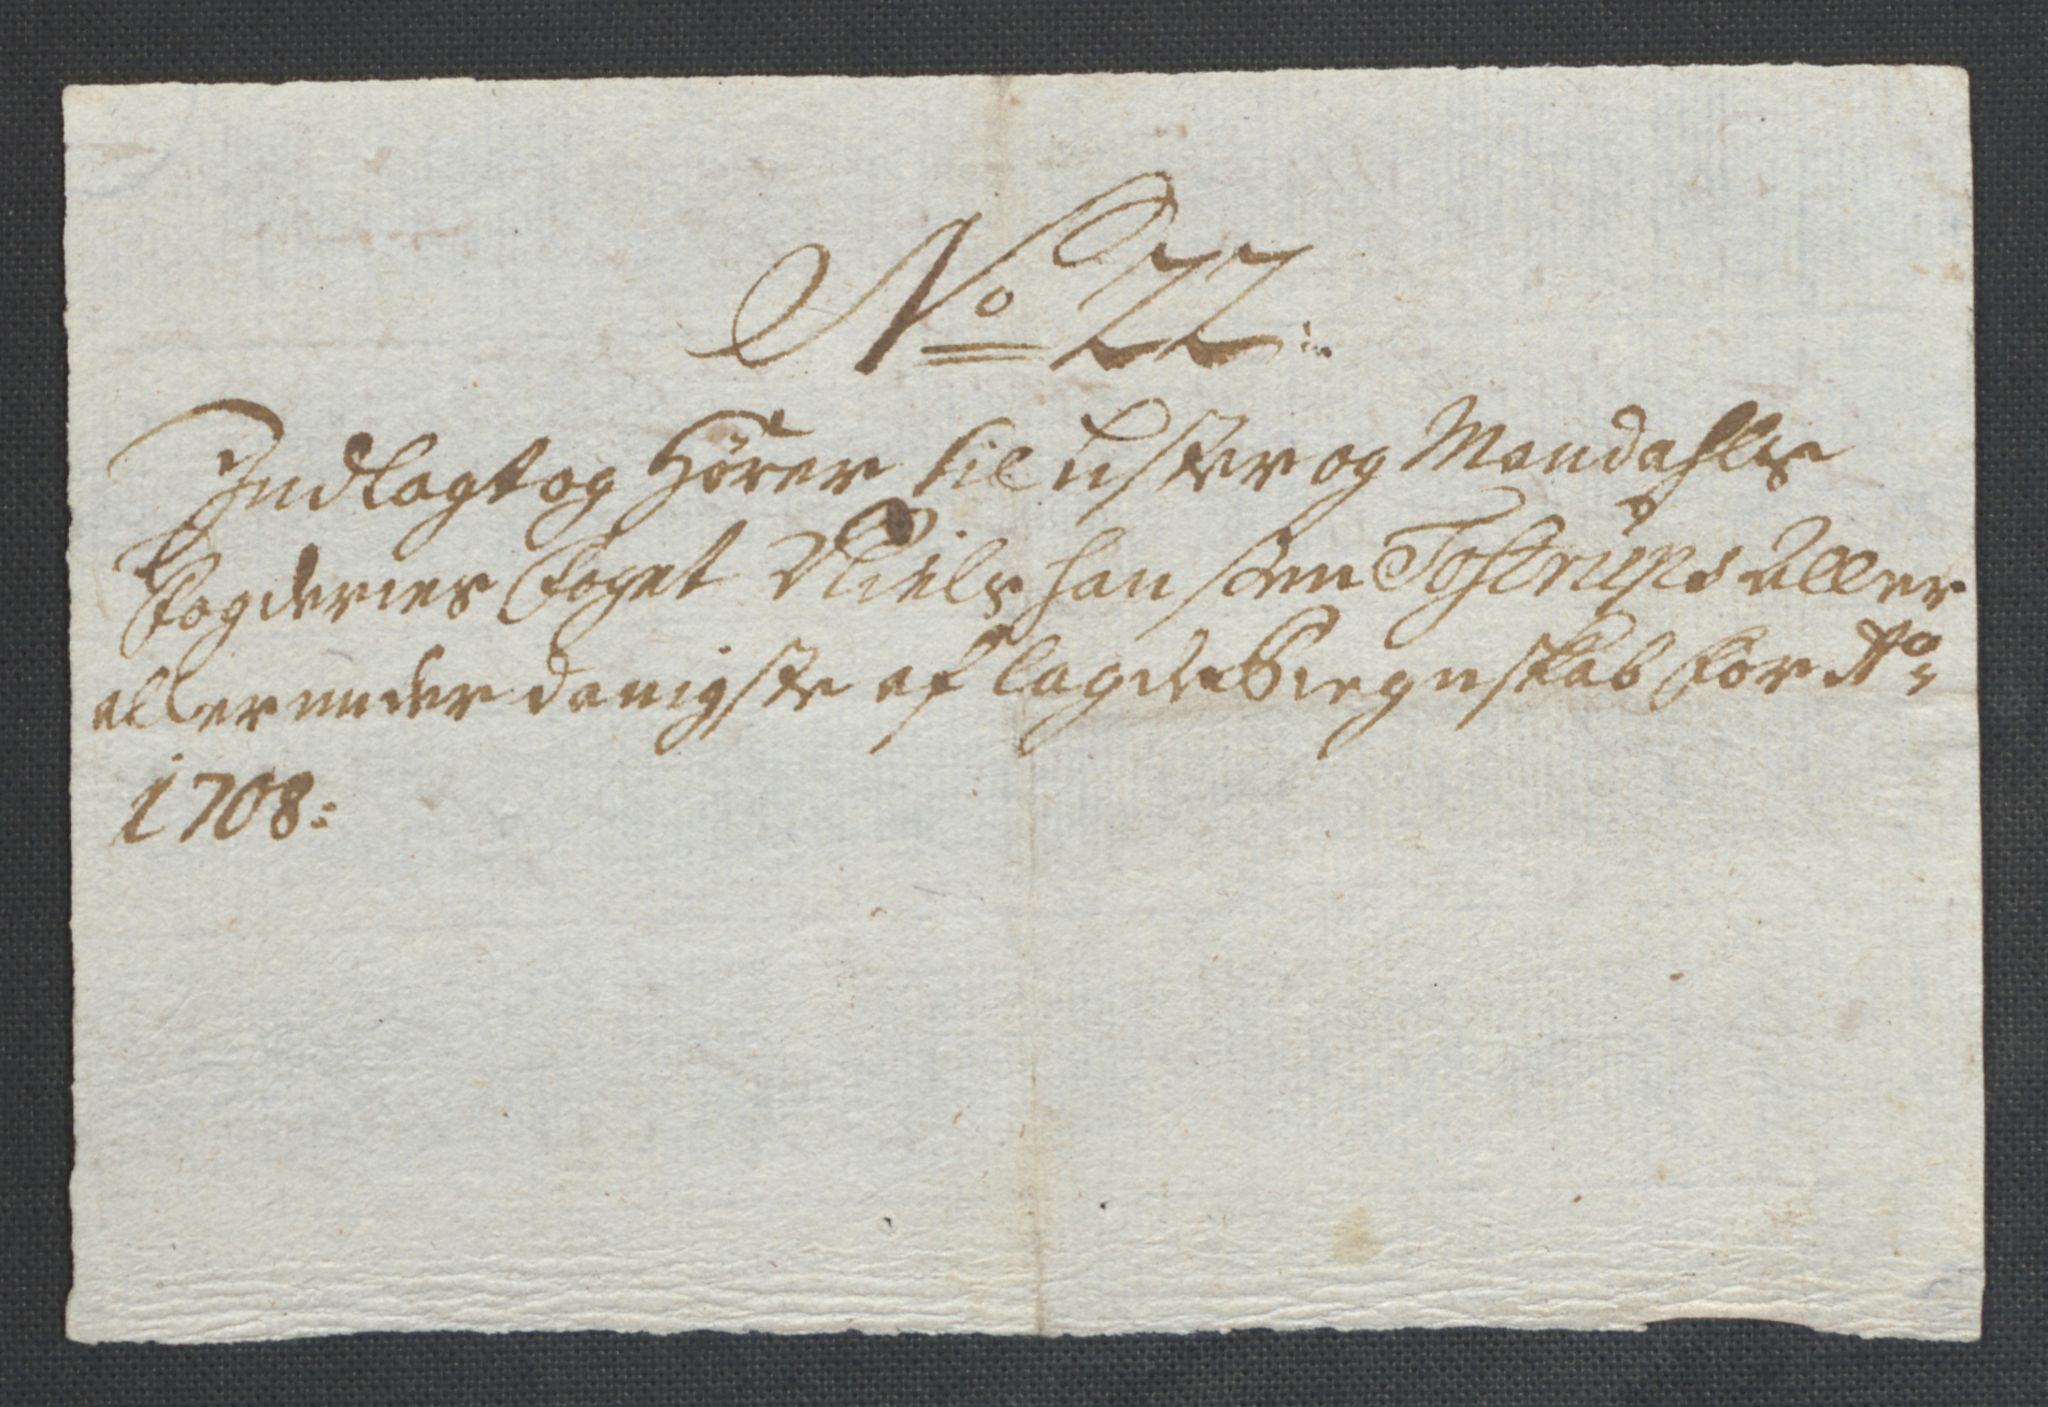 No 22:
Indlagt og Hörer til Lister og Mandahls
Fogderies Foget Niels Hansøen Tostrups aller
allerunderdanigste aflagde Regnskab for Ao
1708: